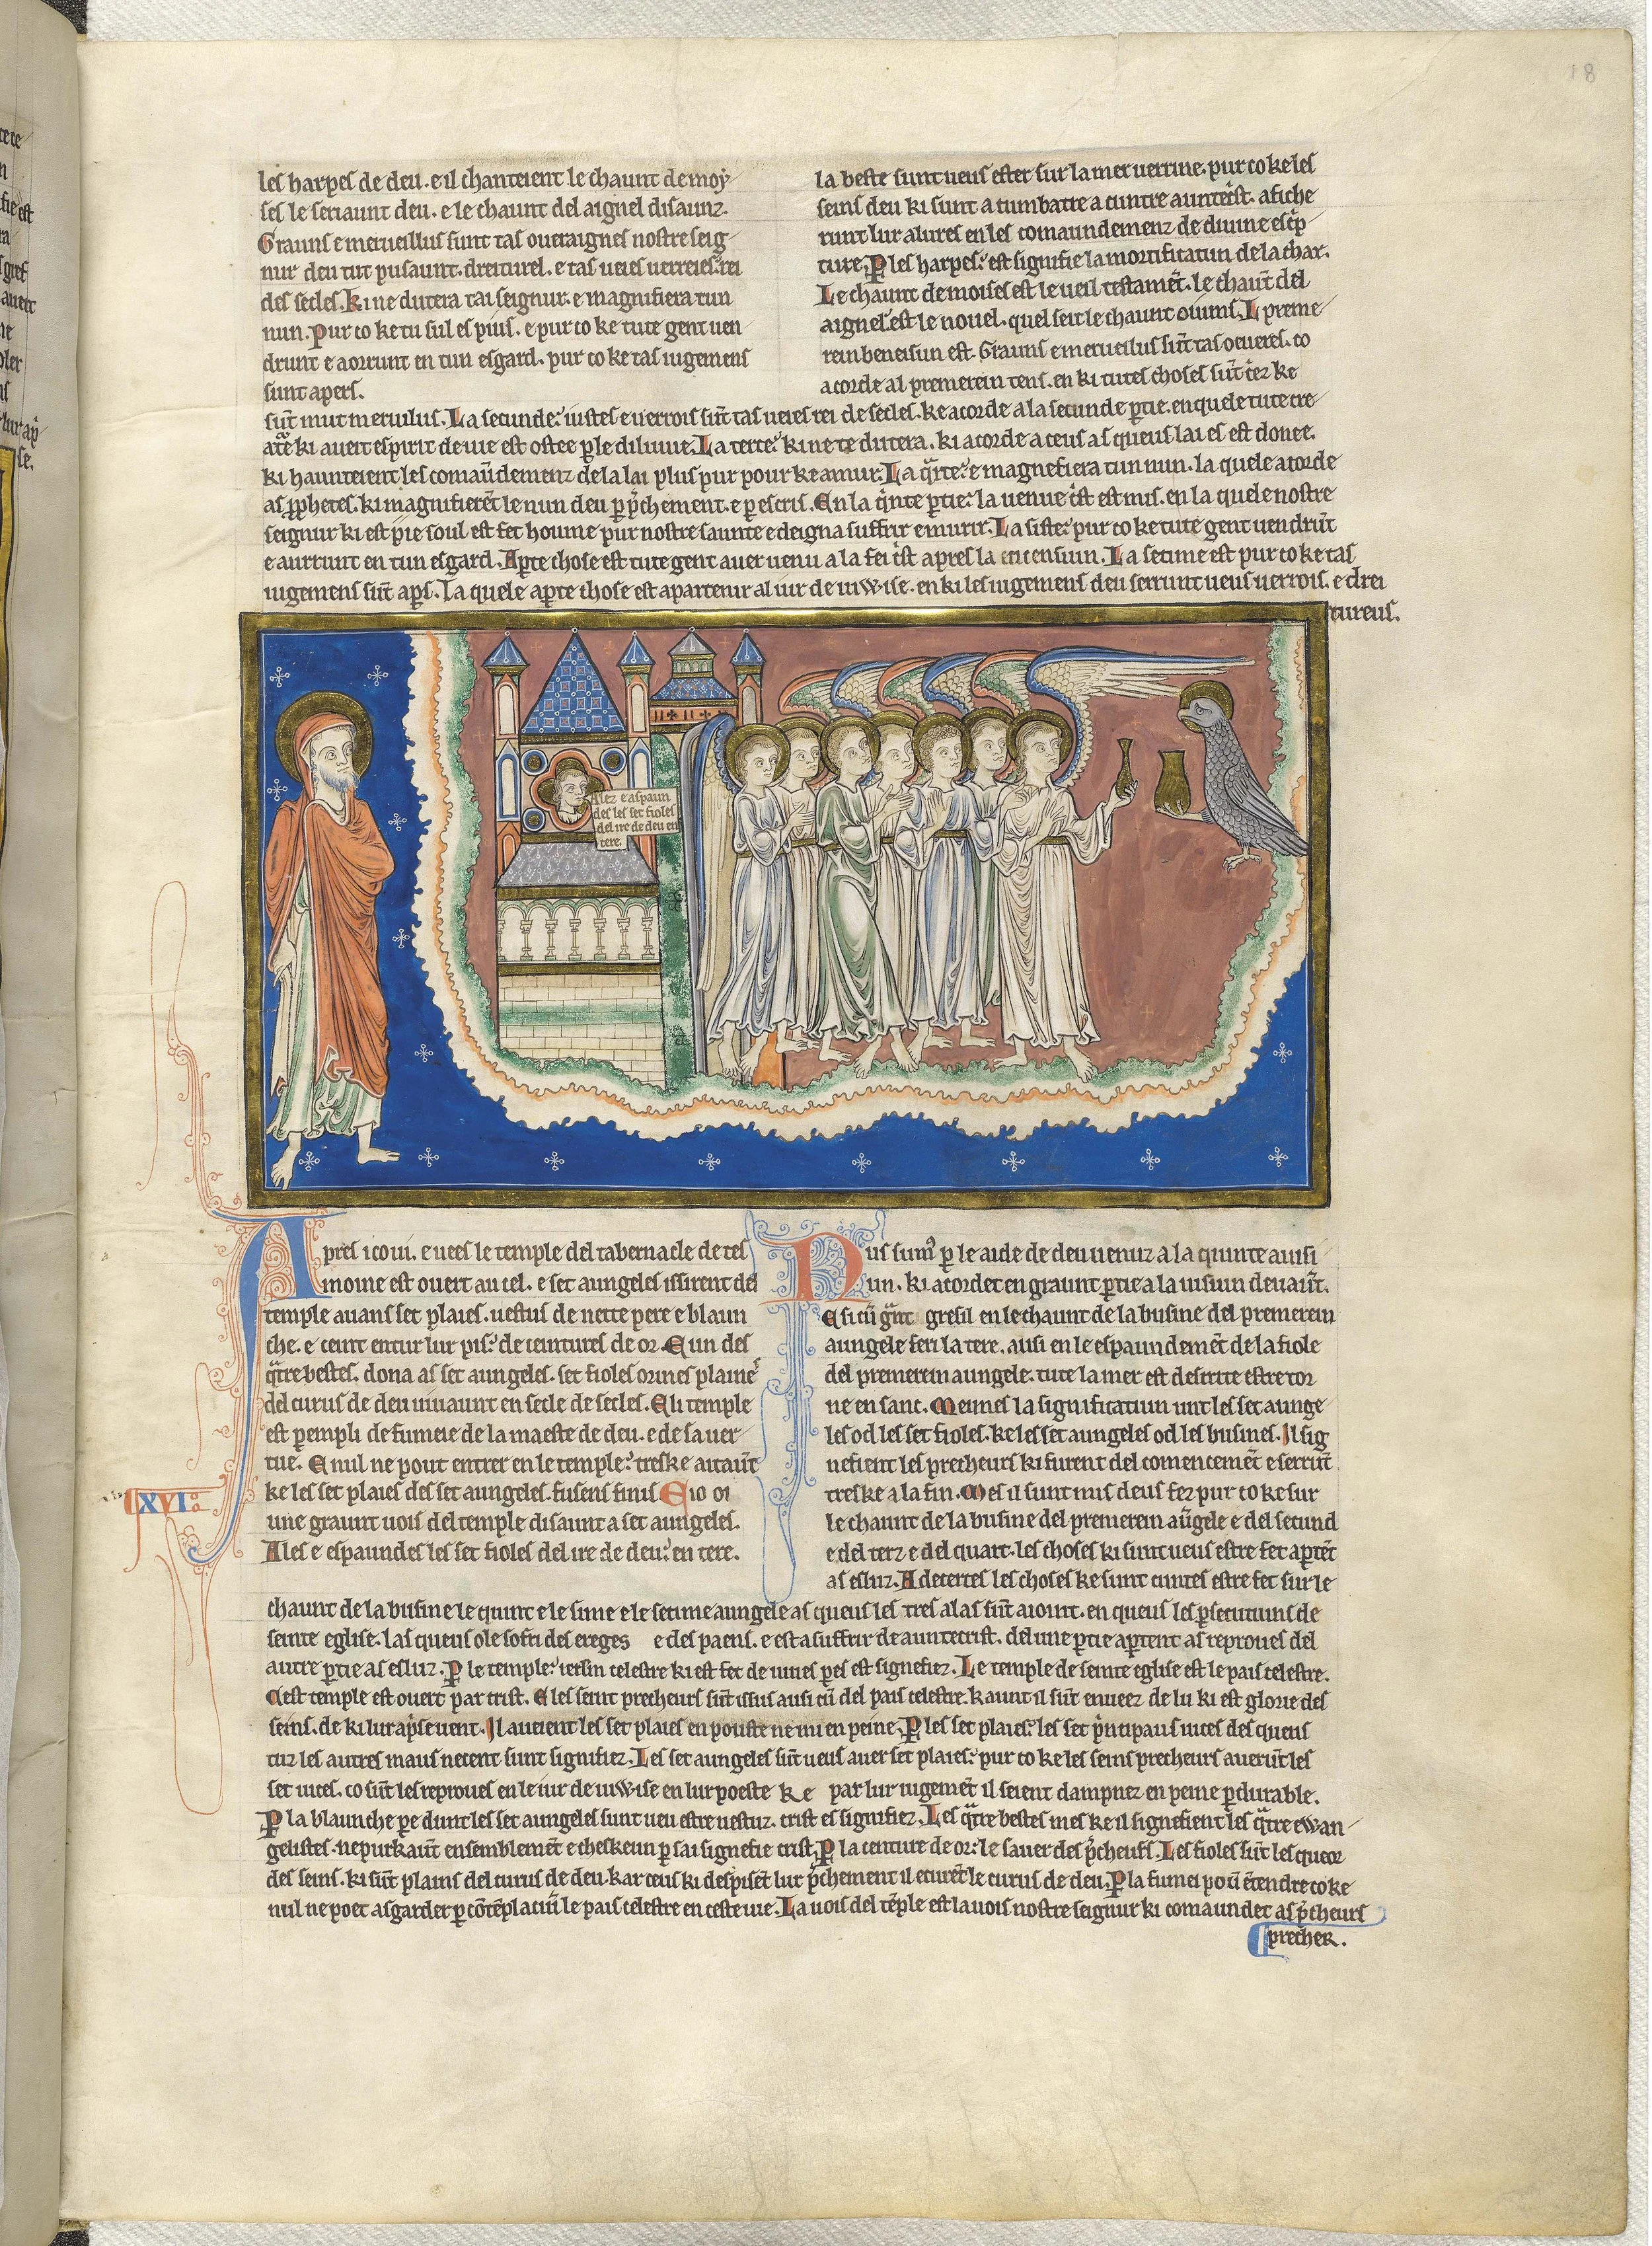 18
les harpes de deu. e il chanteient le chaunt de moy
ses le seriaunt deu. e le chaunt del aignel disaunz.
Grauns e merueillus sunt tas oueraignes nostre seig
nur deu tut pusaunt. dreiturel. e tas ueies uerreies: rei
des secles. Ki ne dutera tai seignur. e magnifiera tun
nun. Pur co ke tu sul es pius. e pur co ke tute gent uen
drunt e aorrunt en tun esgard. pur co ke tas iugemens
sunt apers.
la beste sunt ueus ester sur la mer uerrine. pur co ke les
seins deu ki sunt a cumbatre a cuntre auntecrist. afiche
runt lur alures en les comaundemenz de diuine escrip
ture. P les harpes: est signifie la mortificatiun de la char.
Le chaunt de moises est le ueil testamēt. le chaūt del
aignel est le nouel. quel seit le chaunt oiums. L preme
rein beneisun est. Grauns e merueilus sūt tas oeueres. co
acorde al premerein tens. en ki tutes choses sūt criez ke
sūt mut meruilus. La secunde: iustes e uerrois sūt tas ueies rei de secles. ke acorde a la secunde ptie. en quele tute cre
ature ki aueit espirit de uie est ostee p le diluuie. La terce: ki ne te dutera. ki acorde a ceus as queus la lei est donee.
ki haunteient les comaūdemenz de la lai plus pur pour ke amur. La qrte: e magnefiera tun nun. la quele acorde
as pphetes. ki magnifierēt le nun deu p pchement. e p escris. En la qinte ptie: la uenue crist est mis. en la quele nostre
seignur ki est pie soul est fet houme pur nostre saunte e deigna suffrir e murir. La siste: pur co ke tute gent uendrūt
e aurrunt en tun esgard. Apte chose est tute gent auer uenu a la fei crist apres la ascensiun. La setime est pur co ke tas
iugemens sūt aps. La quele apte chose est apartenir al iur de iuwise. en ki les iugemens deu serrunt ueus uerrois. e drei
tureus.
Alez e aspaun
des les set fioles
del ire de deu en
tere.
Apres ico ui. e uees le temple del tabernacle de tes
moine est ouert au cel. e set aungeles issirent del
temple auans set plaies. uestus de nette pere e blaun
che. e ceint entur lur pis: de ceintures de or. E un des
qtre bestes. dona as set aungeles. set fioles orines plaines
del curus de deu uiuaunt en secle de secles. E li temple
est pempli de fumeie de la maeste de deu. e de sa uer
tue. E nul ne pout entrer en le temple: treske autaūt
ke les set plaies des set aungeles. fusens finis. E io oi
XVI
une graunt uois del temple disaunt a set aungeles.
Ales e espaundes les set fioles del ire de deu: en tere.
Nus sums p le aide de deu uenuz a la quinte auisi
un. ki acordet en graunt ptie a la uisiun deuaūt.
E si cū grant gresil en le chaunt de la busine del premerein
aungele feri la tere. ausi en le espaundemēt de la fiole
del premerein aungele. tute la mer est descrite estre tor
ne en sanc. Meimes la significatiun unt les set aunge
les od les set fioles. ke les set aungeles od les busines. Il sig
nefient les precheurs ki furent del comencemēt e serrūt
treske a la fin. Mes il sunt mis deus fez pur co ke sur
le chaunt de la busine del premerein aūgele e del secund
e del terz e del quart. les choses ki sunt ueus estre fet aptēt
as esluz. A decertes les choses ke sunt cuntes estre fet sur le
chaunt de la busine le quint e le sime e le setime aungele as queus les tres alas sūt aioint. en queus les psecutiuns de
seinte eglise. las queus ole sofri des ereges e des paens. e est a suffrir de auntecrist. del une ptie aptent as reproues del
autre ptie as esluz. P le temple: iersim celestre ki est fet de uiues peres est signefiez. Le temple de seinte eglise est le pais celestre.
Cest temple est ouert par crist. E les seint precheurs sūt issus ausi cū del pais celestre. Kaunt il sūt enueez de lu ki est glorie des
seins. de ki lur aprise uent. Il aueient les set plaies en pouste ne mi en peine. P les set plaies: les set principaus uices des queus
tuz les autres maus necent sunt signifiez. Les set aungeles sūt ueus auer set plaies: pur co ke les seins precheurs auerūt les
set uices. co sūt les reproues en le iur de iuwise en lur poeste ke par lur iugemēt il seient dampnez en peine pdurable.
P la blaunche pe dunt les set aungeles sunt ueu estre uestuz. crist est signifiez. Les qtre bestes mes ke il signefient les qtre ewan
gelistes. nepurkaūt ensemblemēt e cheskeun p sai signefie crist. P la centure de or: le sauer des pcheurs. Les fioles sūt les queor
des seins. ki sūt plains del curus de deu. kar ceus ki despisēt lur pchement il ecurēt le curus de deu. P la fumei poū ētendre co ke
nul ne poet asgarder p cōtēplaciū le pais celestre en ceste uie. La uois del tēple est la uois nostre seignur ki comaundet as pcheurs
precher.